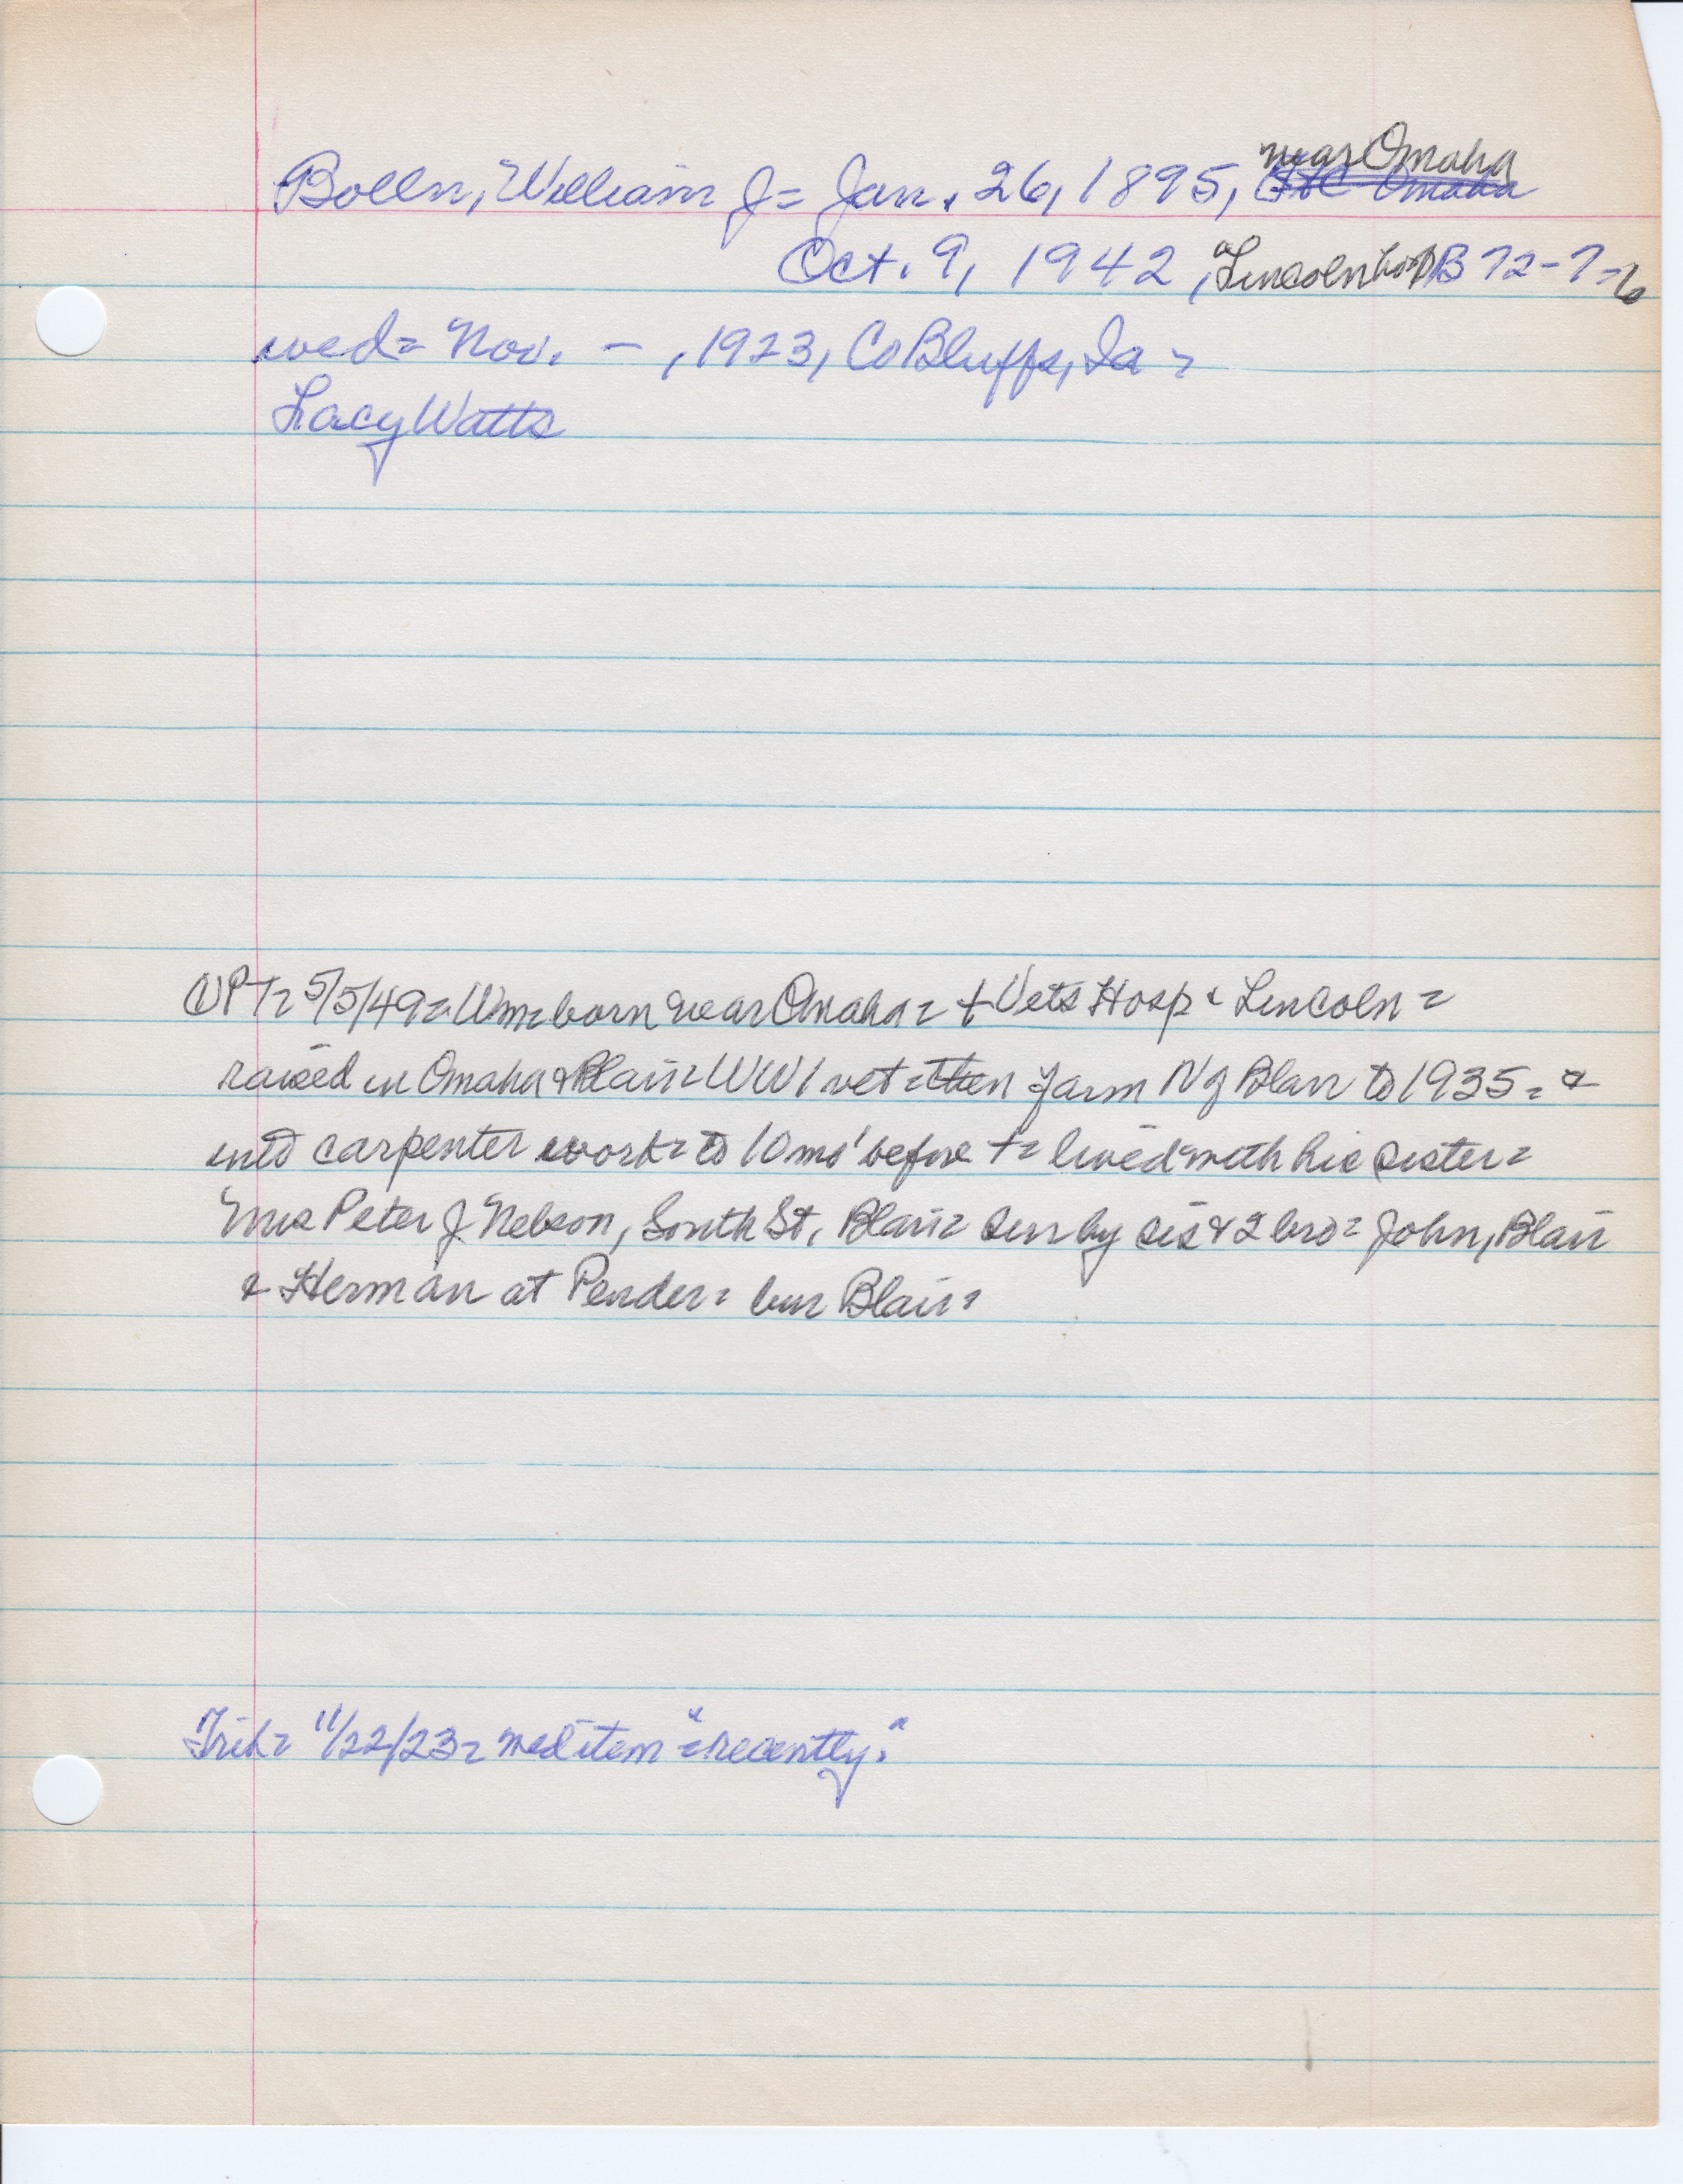 near Omaha
Bolln, William J = Jan. 26, 1895, Omaha
Oct. 9, 1942, Lincoln hosp B 72-7-6
wed = Nov. - , 1923, Co Bluffs, Ia =
Lacy Watts
PT = 5/5/49 = Wm = born near Omaha = + Vets Hosp Lincoln =
raised in Omaha & Blair = WW1 vet = then farm N of Blair to 1935 = &
into carpenter work = to 10 mo' before + = lived with his sister =
Mrs Peter J. Nelson, South St, Blair = sur by sis & 2 bro = John, Blair
& Herman at Pender = bur Blair =
Trib = 11/22/23 = wed item = "recently."